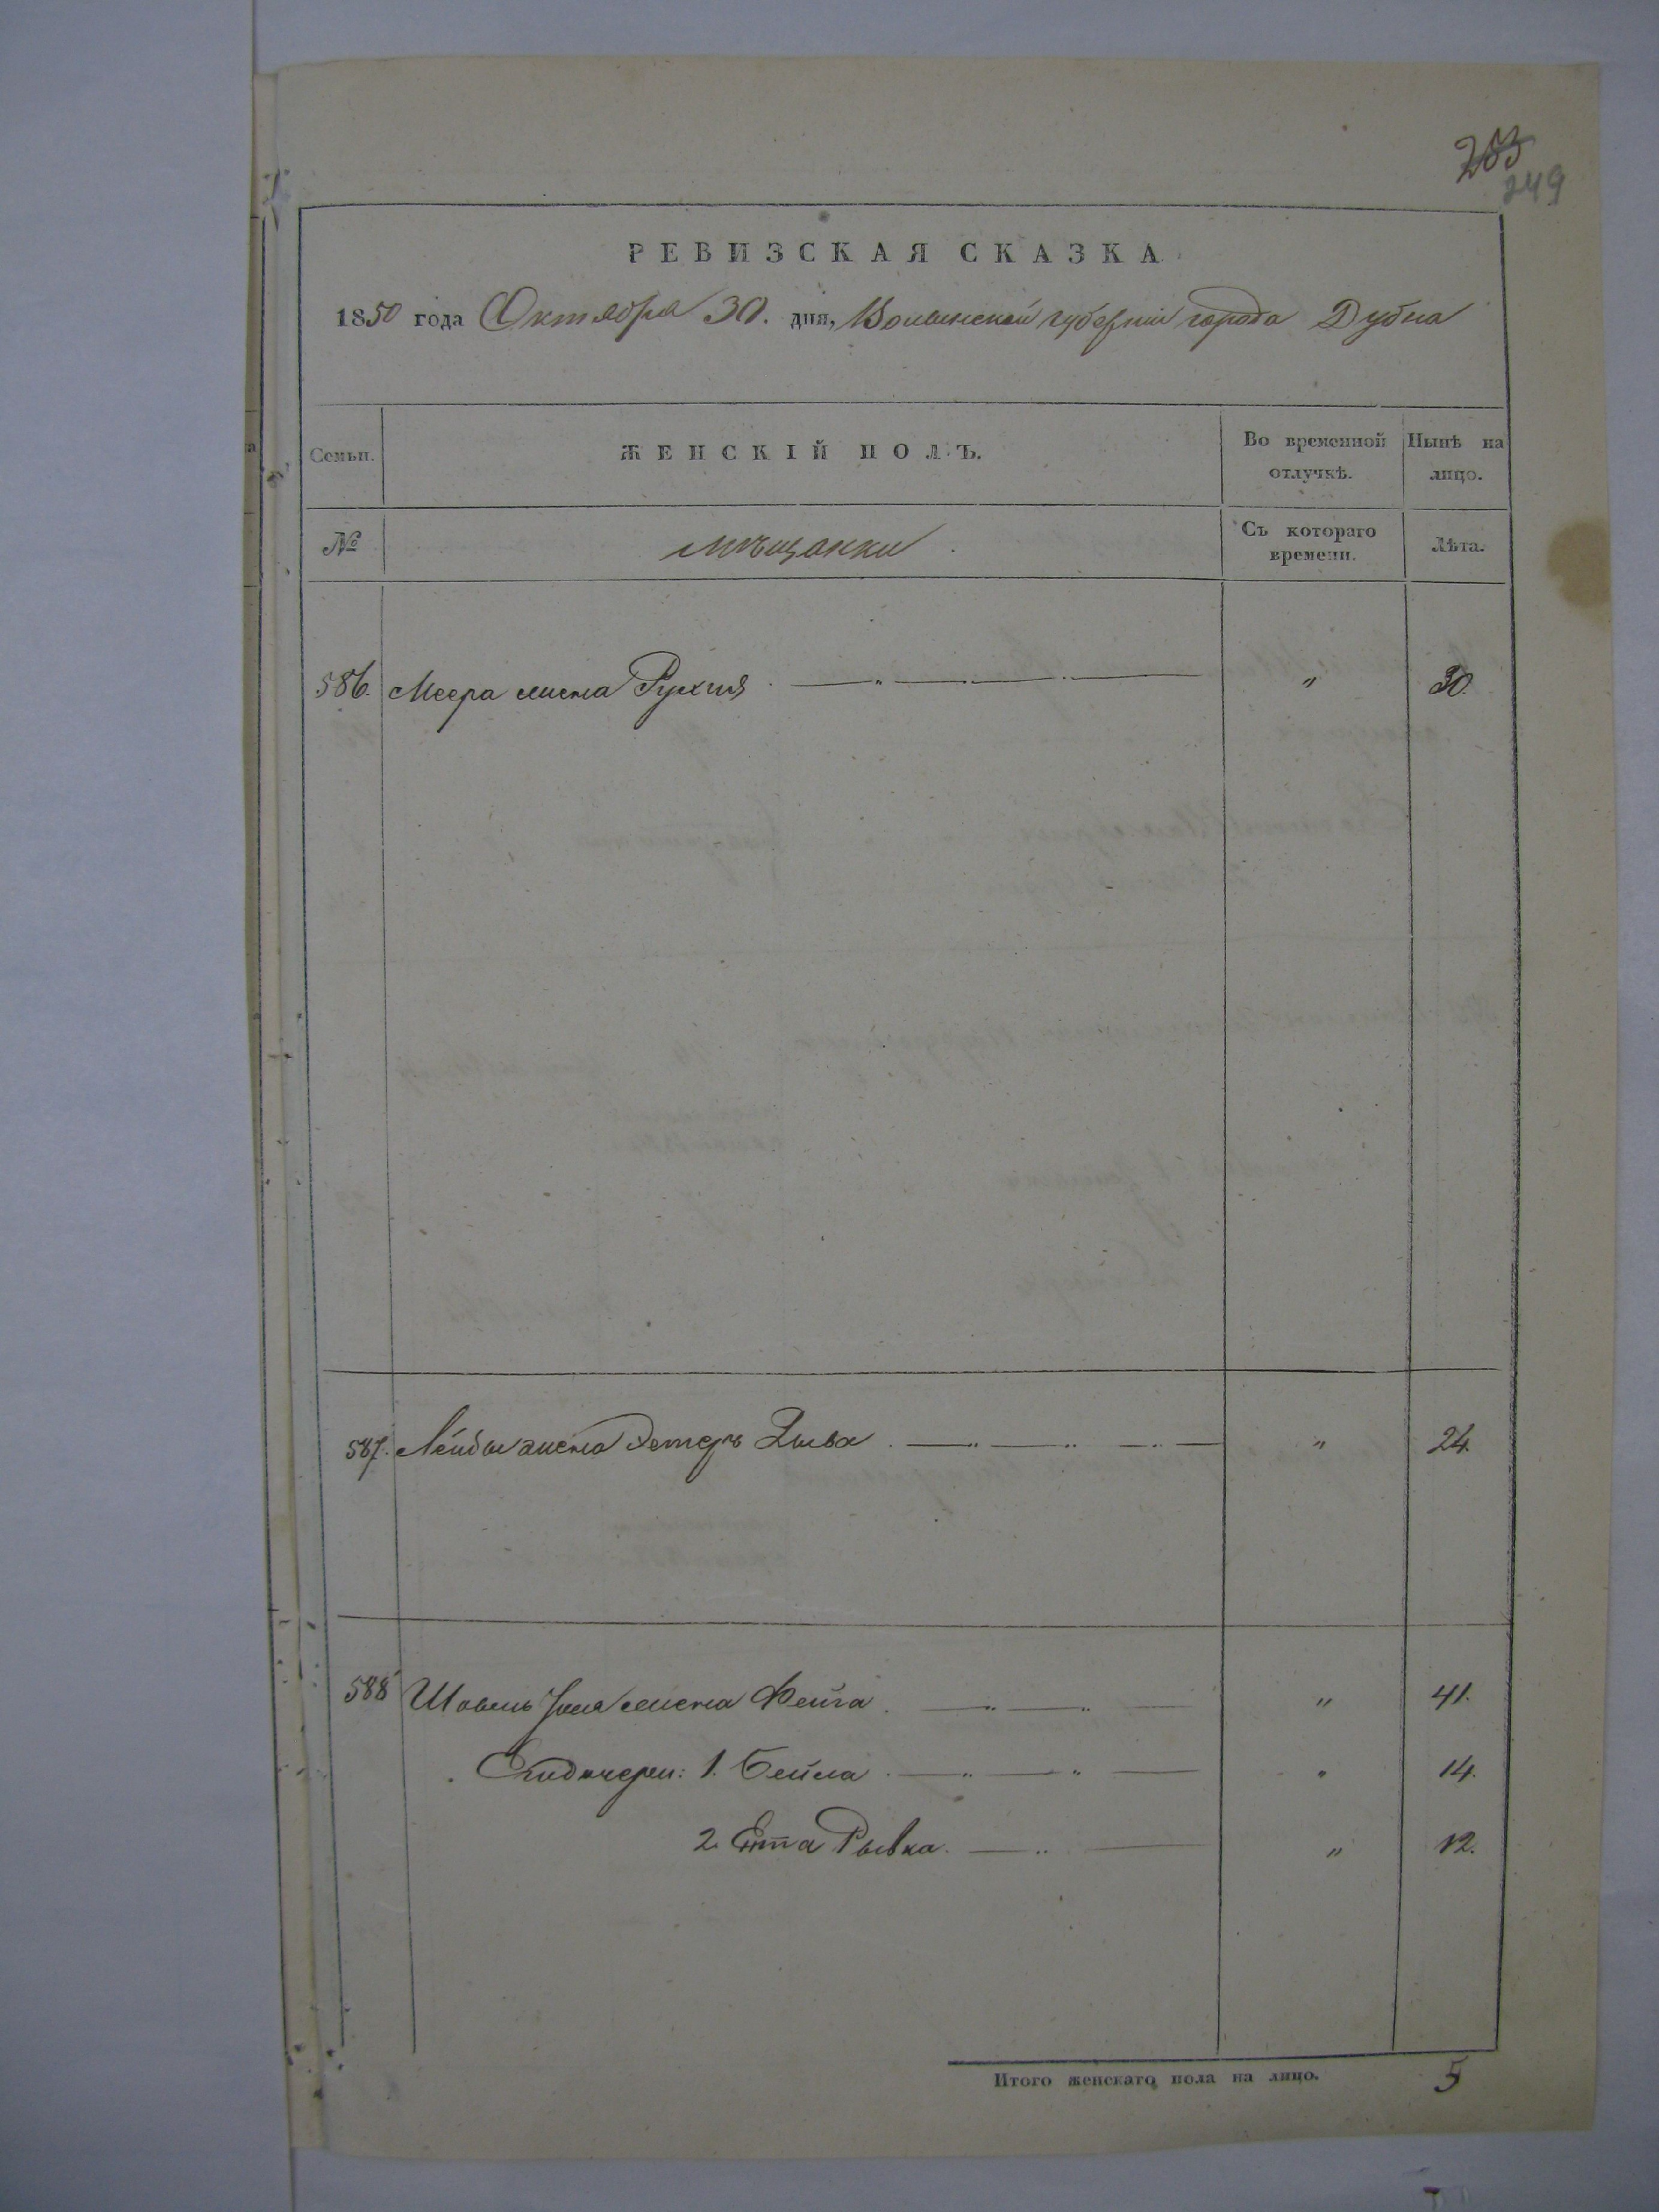 253
249
РЕВИЗСКАЯ СКАЗКА
1850 года Октября 30. дня, Волынской губернии города Дубна
Семьи.
ЖЕНСКІЙ ПОЛЪ.
Во временной отлучкѣ.
Нынѣ на лицо.
№
мѣщанки
Съ котораго времени.
Лѣта.
586. Меера жена Рухля " 30.
587. Лейбы жена Эстеръ Зыва " 24.
588 Шовель жена Фейга " 41.
Его дочери: 1. Бейла " 14.
2. Ента Рывка " 12.
Итого женскаго пола на лицо. 5